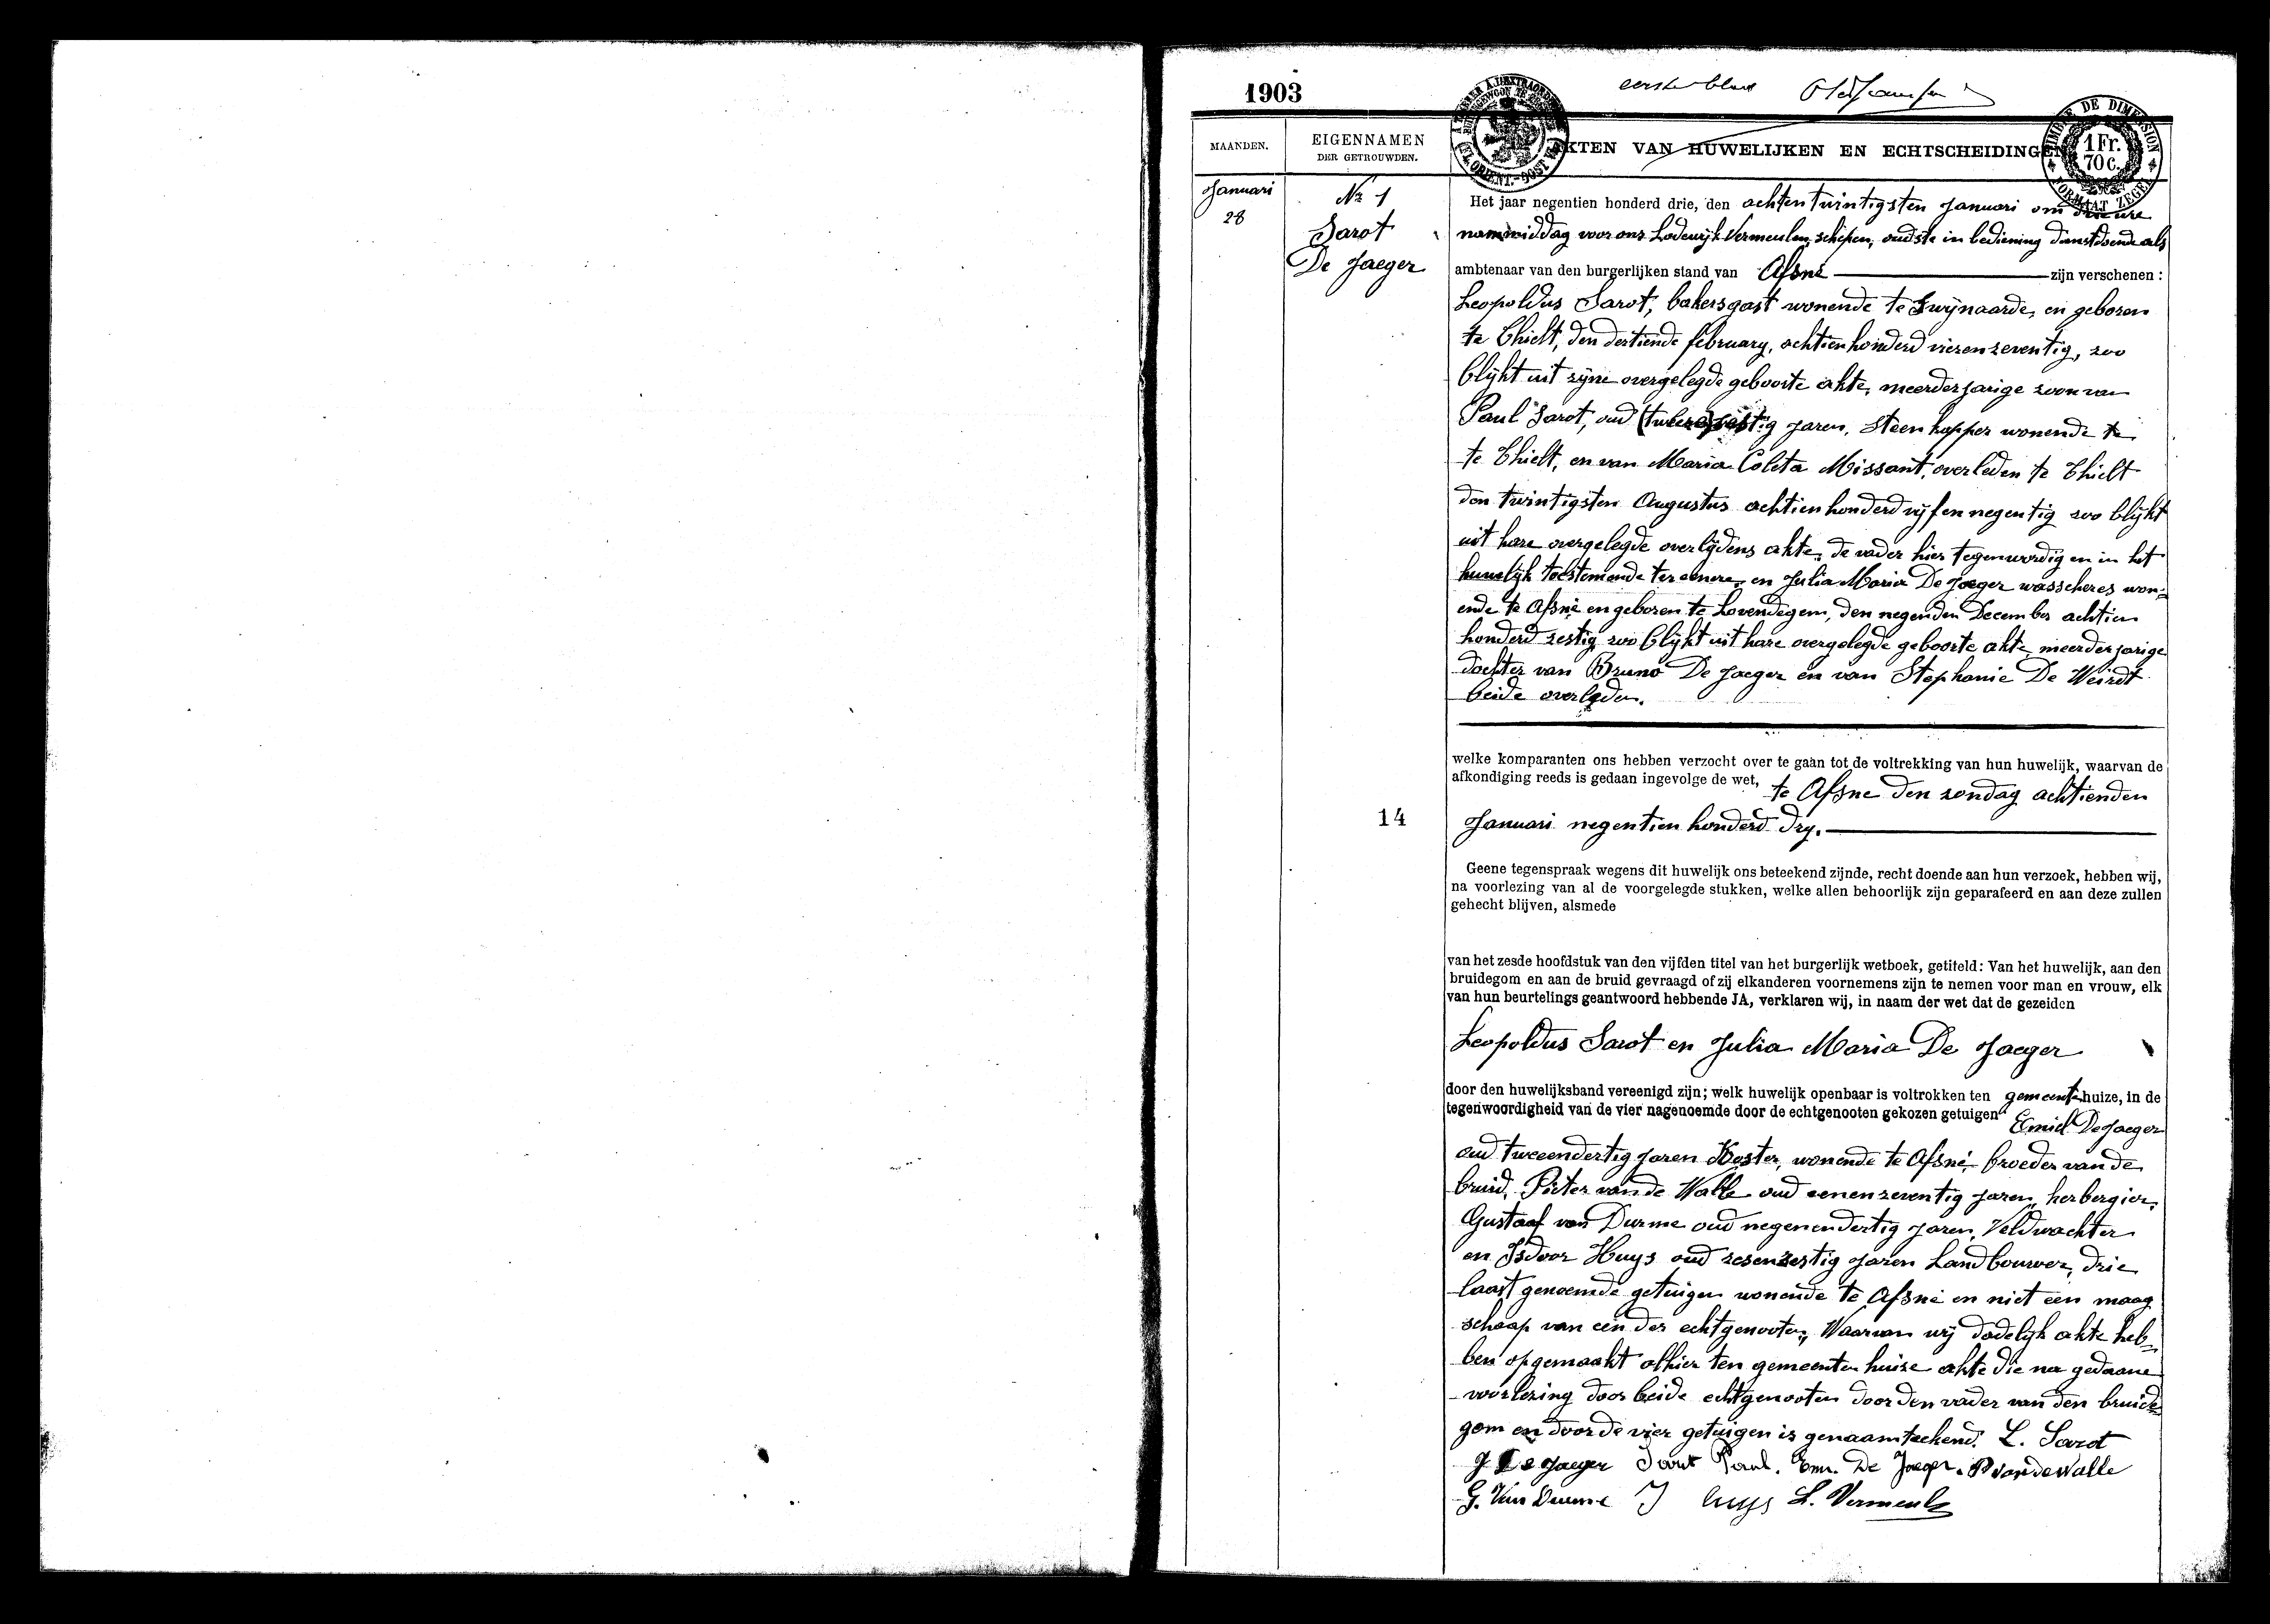 1903
eerste blad
A TIMBRER A L'EXTRAORD
FL. ORIENT.-OOST VL.
TIMBRE DE DIMENSION
1 Fr.
70 c.
FORMAAT ZEGEL
MAANDEN.
EIGENNAMEN
DER GETROUWDEN.
AKTEN VAN HUWELIJKEN EN ECHTSCHEIDINGEN
Januari
28
Nr 1
Sarot
De Jaeger
Het jaar negentien honderd drie, den achtentwintigsten Januari om drie ure
nammiddag voor ons Lodewijk Vermeulen, schepen, oudste in bediening dienstdoende als
ambtenaar van den burgerlijken stand van Afsné zijn verschenen :
Leopoldus Sarot, bakersgast wonende te Zwijnaarde, en geboren
te Thielt, den dertiende february, achtienhonderd vierenzeventig, zoo
blijkt uit zijne overgelegde geboorte akte, meerderjarige zoon van
Paul Sarot, oud (tweeen)zestig jaren, Steenkapper wonende te
te Thielt, en van Maria Coleta Missant, overleden te Thielt
den twintigsten Augustus achtienhonderd vijfennegentig zoo blijkt
uit hare overgelegde overlijdens akte, de vader hier tegenwordig en in het
huwelijk toestemende ter eenere, en Julia Maria De Jaeger wasscheres won=
ende te Afsné en geboren te Lovendegem, den negenden December achtien
honderd zestig zoo blijkt uit hare overgelegde geboorte akte, meerderjarige
dochter van Bruno De Jaeger en van Stephanie De Weirdt
beide overleden.
welke komparanten ons hebben verzocht over te gaan tot de voltrekking van hun huwelijk, waarvan de
afkondiging reeds is gedaan ingevolge de wet, te Afsne den zondag achtienden
14
Januari negentien honderd dry.
Geene tegenspraak wegens dit huwelijk ons beteekend zijnde, recht doende aan hun verzoek, hebben wij,
na voorlezing van al de voorgelegde stukken, welke allen behoorlijk zijn geparafeerd en aan deze zullen
gehecht blijven, alsmede
van het zesde hoofdstuk van den vijfden titel van het burgerlijk wetboek, getiteld: Van het huwelijk, aan den
bruidegom en aan de bruid gevraagd of zij elkanderen voornemens zijn te nemen voor man en vrouw, elk
van hun beurtelings geantwoord hebbende JA, verklaren wij, in naam der wet dat de gezeiden
Leopoldus Sarot en Julia Maria De Jaeger
door den huwelijksband vereenigd zijn; welk huwelijk openbaar is voltrokken ten gemeentehuize, in de
tegenwoordigheid van de vier nagenoemde door de echtgenooten gekozen getuigen Emiel De Jaeger
oud tweeendertig jaren Koster, wonende te Afsné, broeder van de
bruid, Pieter van de Walle oud eenenzeventig jaren, herbergier,
Gustaaf van Durme oud negenendertig jaren, Veldwachter
en Isdoor Huys oud zesenzestig jaren Landbouwer, drie
laast genoemde getuigen wonende te Afsné en niet een maag
schaap van een der echtgenooten, Waarvan wij dadelijk akte heb=
ben opgemaakt alhier ten gemeenten huize akte die na gedaane
voorlezing door beide echtgenooten door den vader van den bruide
gom en door de vier getuigen is genaamteekend. L. Sarot
J De Jaeger Sarot Paul. Em. De Jaeger. P vandewalle
G. Van Durme I Huys L. Vermeulen